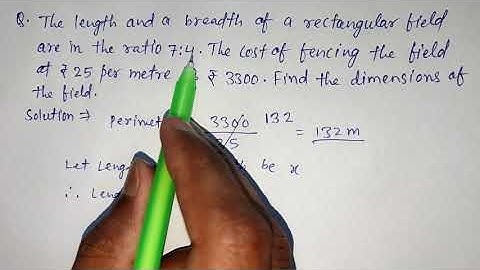 Q. The length and a breadth of a rectangular field
are in the ratio 7:4. The cost of fencing the field
at ₹25 per metre ₹ 3300. Find the dimensions of
the field.
Solution ⇒ Perimet 3300 132 = 132 m
25
Let Leng be x
∴ Leng